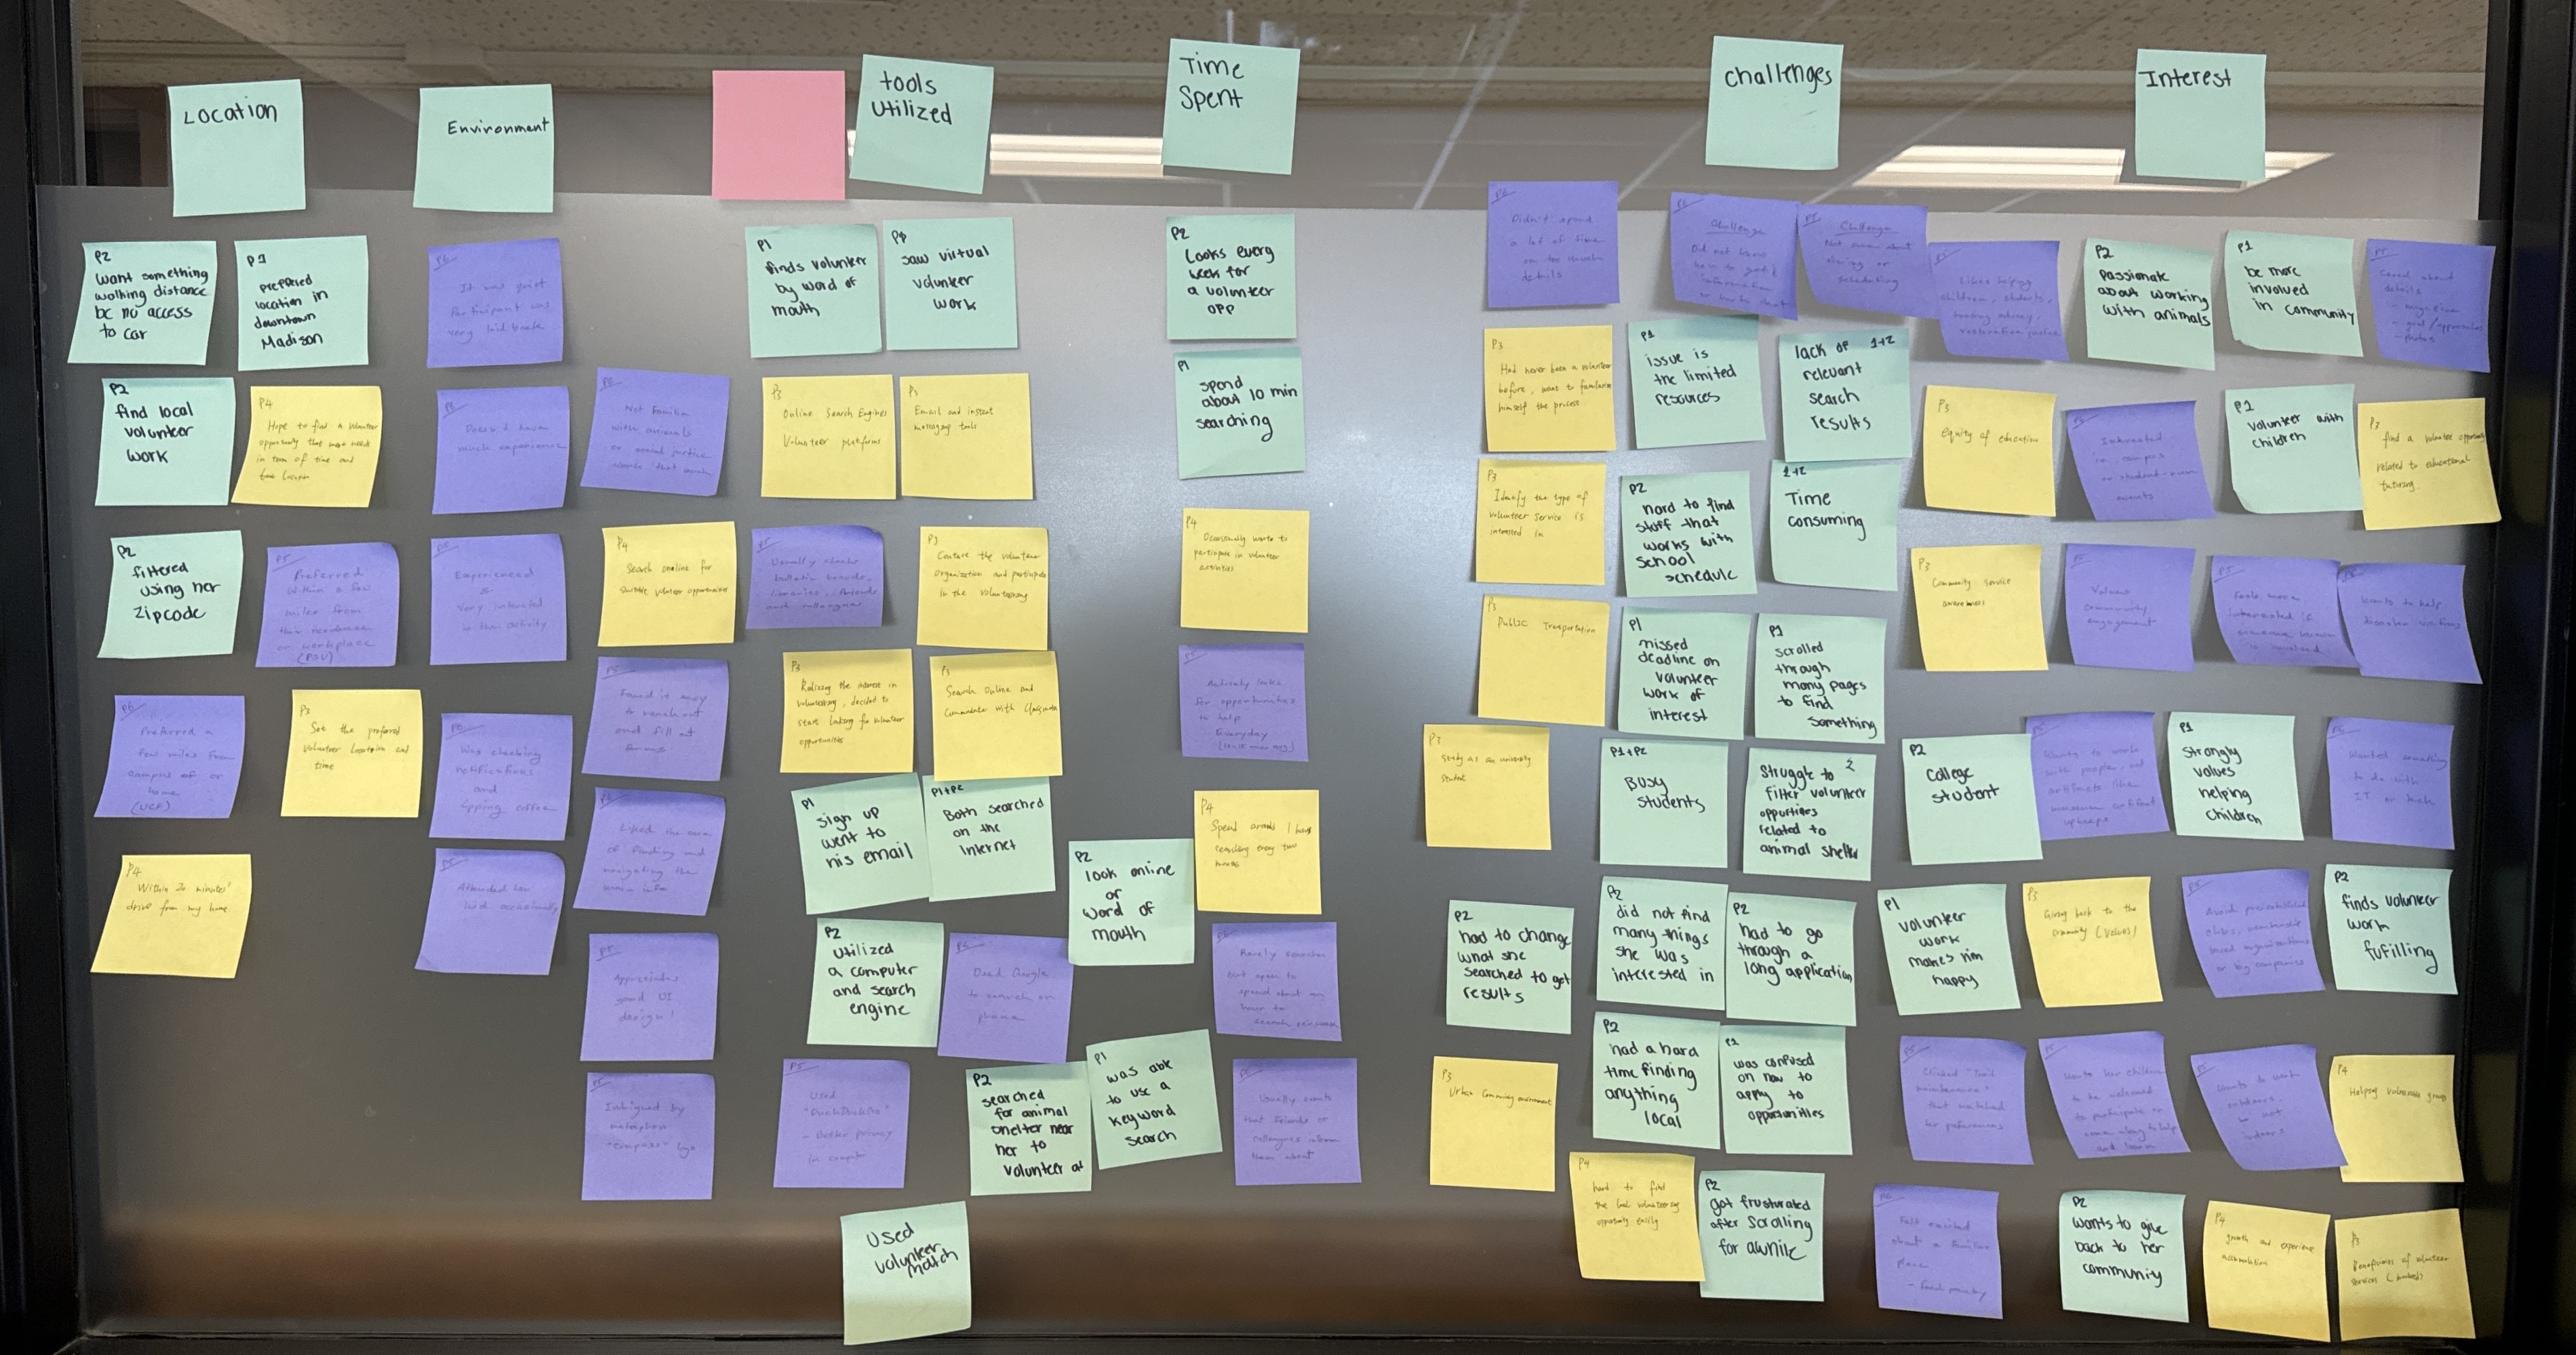 Location
Environment
tools
Utilized
Time
Spent
challenges
Interest
P2
want something
walking distance
bc no access
to car
P1
preffered
location in
downtown
Madison
P2
find local
volunteer
work
P4
Hope to find a volunteer
opportunity that meet needs
in term of time and
location
P2
filtered
using her
zipcode
P5
Preferred
within a few
miles from
their residence
or workplace
(PSU)
P6
Preferred a
few miles from
campus or
home
(UCF)
P3
Set the preferred
volunteer location and
time
P4
Within 20 minutes'
drive from my home.
P6
It was quiet
Participant was
very laid back
P6
Doesn't have
much experience
P6
Not familiar
with animals
or social justice
P5
Experienced
&
Very interested
in this activity
P6
Was checking
notifications
and
sipping coffee
P5
Attended
occasionally
P4
Search online for
suitable volunteer opportunities
P5
Found it easy
to reach out
and fill out
forms
Liked the ease
of finding and
navigating the
info
P5
Appreciates
good UI
design!
P5
Intrigued by
metaphor
"compass" logo
P1
finds volunteer
by word of
mouth
saw virtual
volunteer
work
P3
Online Search Engines
Volunteer platforms
P3
Email and instant
messaging tools
P5
Usually checks
bulletin boards,
libraries, friends
and colleagues
P3
Contact the volunteer
organization and participate
in the volunteering
P3
Realizing the interest in
volunteering, decided to
start looking for volunteer
opportunities
P3
Search Online and
with Classmates
P1
sign up
went to
his email
P1+P2
Both searched
on the
Internet
P2
look online
or
word of
mouth
P2
Utilized
a computer
and search
engine
P6
Used Google
to search on
phone
P5
Used
"DuckDuckGo"
- Better privacy
in computer
P2
searched
for animal
shelter near
her to
volunteer at
P1
was able
to use a
keyword
search
Used
volunteer
match
P2
Looks every
week for
a volunteer
opp
P1
spend
about 10 min
searching
P4
Occasionally wants to
participate in volunteer
activities
P5
Actively looks
for opportunities
to help
Everyday
P4
Spend around 1 hours
searching every two
P6
Rarely searches
but open to
spend about an
hour to
search per week
Usually events
that friends or
colleagues inform
them about
P6
Didn't spend
a lot of time
on too much
details
P6
Challenge
Did not know
how to get
information
P5
Challenge
Not sure about
timing or
scheduling
P3
Had never been a volunteer
before, want to familiarize
himself the process
P1
issue is
the limited
resources
1+2
lack of
relevant
search
results
P3
Identify the type of
volunteer service is
interested in
P2
hard to find
stuff that
works with
school
schedule
1+2
Time
consuming
P3
Public Transportation
P1
missed
deadline on
volunteer
work of
interest
P1
scrolled
through
many pages
to find
something
P3
Study as an university
student
P1+P2
Busy
students
2
Struggle to
filter volunteer
oppurtinies
related to
animal shelter
P2
had to change
what she
searched to get
results
P2
did not find
many things
she was
interested in
P2
had to go
through a
long application
P2
had a hard
time finding
anything
local
was confused
on how to
apply to
opportunities
P3
Urban Community environment
P4
hard to find
the volunteering
opportunity easily
P2
got frusturated
after scrolling
for awhile
Likes helping
children, students,
P2
passionate
about working
with animals
P1
be more
involved
in community
P5
Cared about
details
- photos
P3
equity of education
Interested
in campus
or student-run
events
P1
volunteer with
children
P3
find a volunteer opportunity
related to educational
tutoring.
P3
Community service
awareness
P5
Values
community
engagement
P5
Feels more
interested if
someone known
is involved
Wants to help
disaster victims
P2
College
student
Wants to work
with people, not
artifacts like
museum artifact
upkeep
P1
Strongly
values
helping
children
P6
Wanted something
to do with
IT or tech
P1
volunteer
work
makes him
happy
P3
Giving back to the
community (values)
P5
Avoid pre-established
clubs,
based organizations
or big companies
P2
finds volunteer
work
fufilling
P5
Clicked "Trail
maintenance"
that matched
her preferences
Wants her children
to be welcomed
to participate or
come along to help
and learn
P5
Wants to work
outdoors,
not
indoors
P4
Helping vulnerable groups
P6
Felt excited
about a familiar
place
- food pantry
P2
wants to give
back to her
community
P4
growth and experience
accumulation
P3
Beneficiaries of volunteer
services